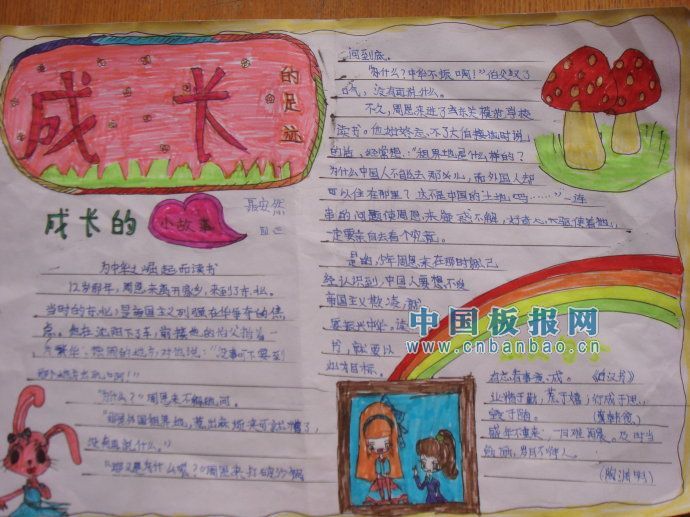 成长
的足迹
成长的
小故事
为中华之崛起而读书
12岁那年，周恩来离开家乡，来到了东北。
当时的东北，是帝国主义列强在华争夺的焦
点。他在沈阳下了车，前接他的伯父指着一
片繁华、热闹的地方，对他说：“没事可不要到
那个地方去玩啊！”
“为什么？”周恩来不解地问。
“那是外国租界地，惹出麻烦来可就糟了，
没有再说什么。”
“那又是为什么呢？”周恩来打破沙锅
问到底。
“为什么？中华不振啊！”伯父叹了
口气，没有再说什么。
不久，周恩来进了东关模范学校
读书。他始终忘不了大伯接他时说
的话，经常想：“租界地是什么样的？
为什么中国人不能去那儿，而外国人却
可以住在那里？这不是中国的土地吗……”一连
串的问题使周恩来疑惑不解，好奇心驱使着他，
一定要亲自去看个究竟。
是的，少年周恩来在那时就已
经认识到，中国人要想不受
帝国主义欺凌，就
要振兴中华。读
书，就要以
此为目标。
中国板报网
www.cnbanbao.cn
有志者事竟成。《后汉书》
业精于勤，荒于嬉；行成于思，
毁于随。
盛年不重来，一日难再晨。及时当
勉励，岁月不待人。
（陶渊明）